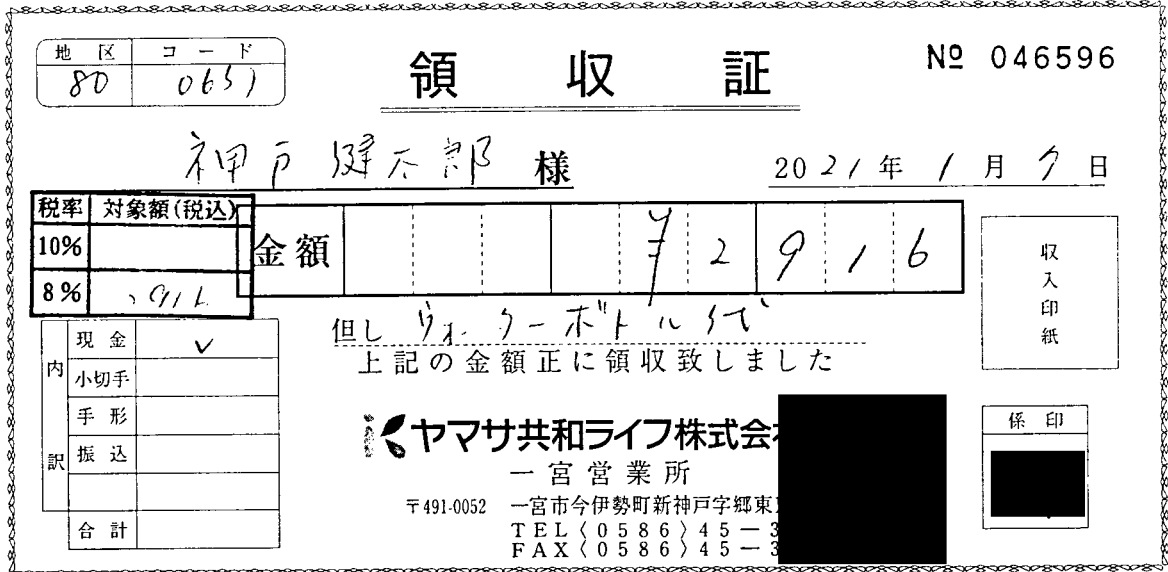 地区 コード
80 0651
領収証
№ 046596
神戸健太郎 様
2021年1月7日
税率 対象額(税込)
10%
8%
金額 ¥2916
収入印紙
但し ウォーターボトル代
上記の金額正に領収致しました
内訳
現金 ✓
小切手
手形
振込
合計
ヤマサ共和ライフ株式会
一宮営業所
〒491-0052 一宮市今伊勢町新神戸字郷東
TEL〈0586〉45-3
FAX〈0586〉45-3
係印